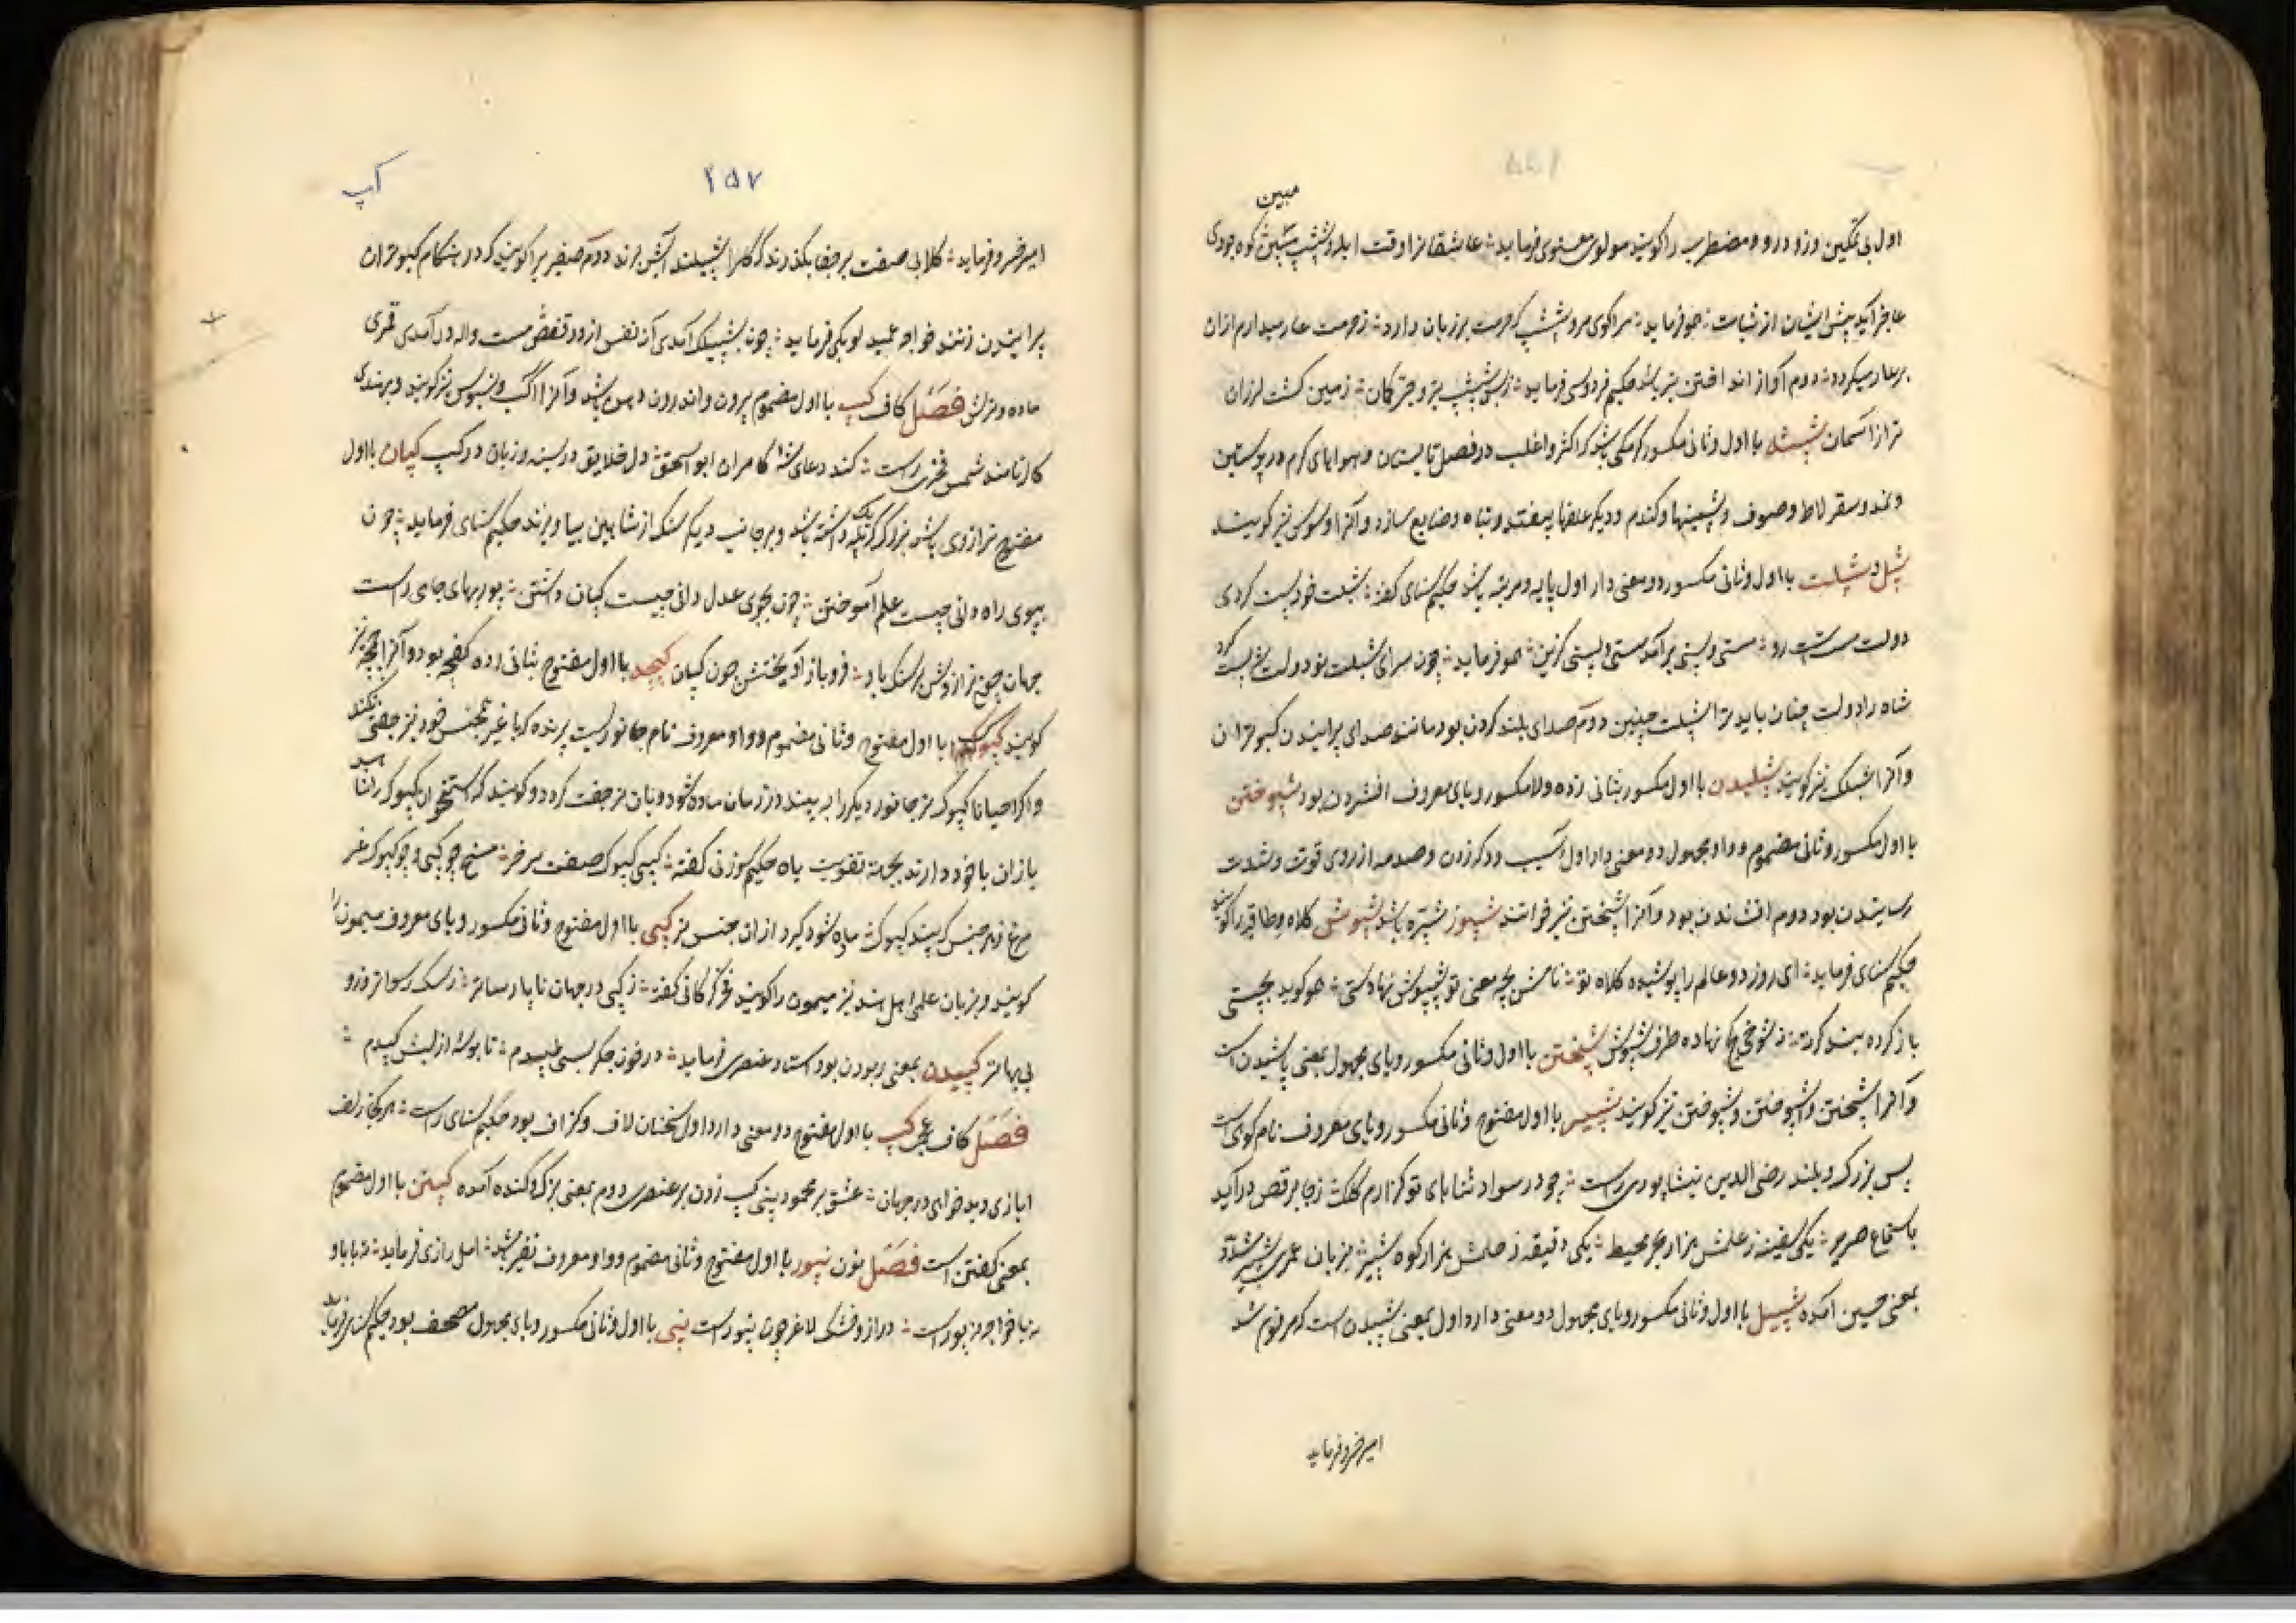 مبین
اول بی تمکین و زود رو و مضطرب را کویند مولوی معنوی فرماید عاشقانرا وقت ابله و شپشپ مبین کوه جودی
عاجز آید پیش ایشان از ثبات هم فرماید مرا کوی مرو شپشپ که حرمت بر زبان دارد ز حرمت عار میدارم ازان
بر عار میکردد دوم آواز انداختن تیر باشد حکیم فردوسی فرماید ز بس شپشپ تیر و چر کان زمین کشت لرزان
تر از آسمان شپشه با اول و ثانی مکسور کرمکی باشد که اکثر و اغلب در فصل تابستان و هوایهای کرم در پوستین
و نمد و سقرلاط و صوف و پشمینها و کندم و دیکر علفها بیفتد و تباه و ضایع سازد و آنرا سوس نیز کویند
شپل و شپلت با اول و ثانی مکسور دو معنی دارد اول پایه و مرتبه باشد حکیم سنای کفته شپلت خود پست کردی
دولت مست رو مستی و پستی بر آمد مستی و پستی کزین هم فرماید چون سرای شپلت بود دولت شپلت کرد
شاه را دولت چنان باید ترا شپلت چنین دوم صدای بلند کردن بود مانند صدای پرانیدن کبوتران
و آنرا شپلک نیز کویند شپلیدن با اول مکسور بثانی زده و لام مکسور و یای معروف افشردن بود شپوختن
با اول مکسور و ثانی مضموم و واو مجهول دو معنی دارد اول آسیب و دکه زدن و صدمه از روی قوت و شدت
رسانیدن بود دوم افشاندن بود و آنرا شپختن نیز خوانند شپور شپره باشد شپوش کلاه و طاقیه را کویند
حکیم سنای فرماید ای روز دو عالم را پوشیده کلاه تو نامش بچه معنی تو شپپوش نهادستی هم کوید بچستی
باز کرده بند کرته ز شوخی کج نهاده طرف شپوش شپختن با اول و ثانی مکسور و یای مجهول بمعنی پاشیدن است
و آنرا شپختن و اشپوختن و شپوختن نیز کویند شپیر با اول مفتوح و ثانی مکسور و یای معروف نام کوهی است
بس بزرک و بلند رضی الدین نیشاپوری راست چو در سواد ثناهای تو کزارم کلک ز جا برقص در آید
باستماع صریر یکی سفینه ز علمش هزار بحر محیط یکی دقیقه ز حلمش هزار کوه شپیر بزبان عبری شپیر و شبر
بمعنی حسین آمده شپیل با اول و ثانی مکسور و یای مجهول دو معنی دارد اول بمعنی شپیلیدن است که مرقوم شد
امیر خسرو فرماید
آپ
۲۵۷
امیر خسرو فرماید کلابی صفت بر جفا بکذرند که کل را شپیلند آتش برند دوم صفیر را کویند که در هنکام کبوتران
پرانیدن زنند خواجه عمید لوبکی فرماید چون بشپیلک آمدی آن نفس از درون قفص مست واله در آمدی قمری
ماده و نرش فصل کاف کپ با اول مضموم بیرون و اندرون دهن باشد و آنرا اکپ و لنبوس نیز کویند و بهندی
کال نامند شمس فخری راست کند دعای شه کامران ابو اسحق دل خلایق در سینه و زبان در کپ کپان با اول
مفتوح ترازوی باشد بزرک که یک پله داشته باشد و بر جانب دیکر سنک از شاهین بیاویزند حکیم سنای فرماید چون
بپوی راه دانی چیست علم آموختن چون بجوی عدل دانی چیست کپان داشتن پور بهای جامی راست
جهان چون ترازوش پر سنک باد فرو باز آویختش چون کپان کپچه با اول مفتوح بثانی زده کفچه بود و آنرا کمچه نیز
کویند کپوک با اول مفتوح و ثانی مضموم و واو معروف نام جانوریست پرنده که با غیر جنس خود نیز جفتی کند
و اکر احیانا کپوک نر جانور دیکر را به بیند در زمان ماده شود و بان نر جفت کردد و کویند که استخوان کپوک را
بازان با خود دارند بجهة تقویت باه حکیم سوزنی کفته کپی کپوک صفت بر خر مسخ چو کپی و چو کپوک غر
مرغ نر هر جنس که بیند کپوک ماده شود کیرد ازان جنس نر کپی با اول مفتوح و ثانی مکسور و یای معروف میمون را
کویند و بزبان علمی اهل هند نیز میمون را کویند فخر کرکانی کفته ز کپی در جهان ناپارساتر ز سک رسواتر و زو
بی بهاتر کپیدن بمعنی ربودن بود استاد عنصری فرماید در خون جکر بسی طپیدم تا بوسه از لبش کپیدم
فصل کاف عجمی کپ با اول مفتوح دو معنی دارد اول سخنان لاف و کزاف بود حکیم سنای راست هر کجا زلف
ایازی دید خواهی در جهان عشق بر محمود بینی کپ زدن بر عنصری دوم بمعنی بزرک و کنده آمده کپتن با اول مضموم
بمعنی کفتن است فصل نون نپور با اول مفتوح و ثانی مضموم و واو معروف نفیر باشد اهل رازی فرماید نه بابا و
نه با خواجه نپور است دراز و خشک لاغر چون نپور است نپی با اول و ثانی مکسور و یای مجهول مصحف بود حکیم سنای فرماید